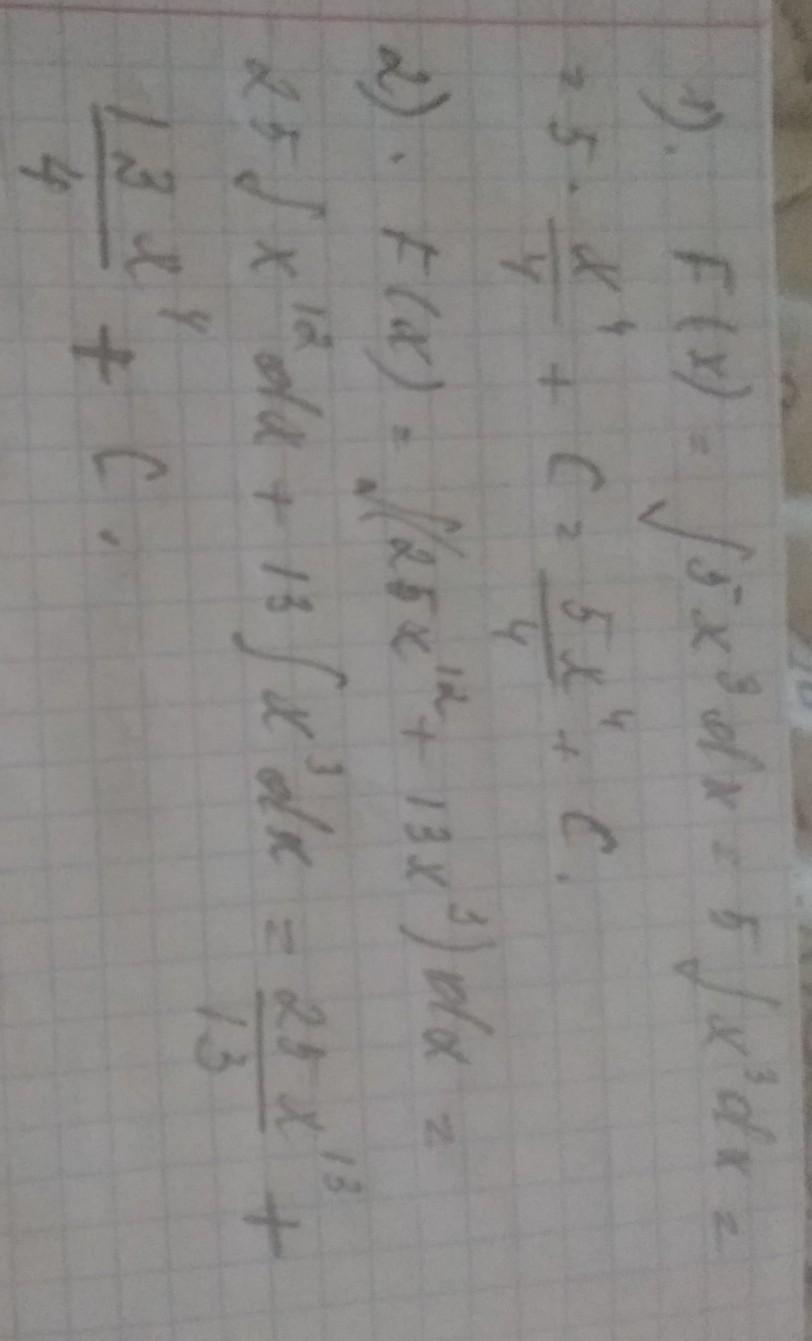 1). F(x) = ∫5x³dx = 5∫x³dx =
= 5 · x⁴/4 + C = 5x⁴/4 + C.
2). F(x) = ∫(25x¹² + 13x³)dx =
25∫x¹²dx + 13∫x³dx = 25x¹³/13 +
13x⁴/4 + C.